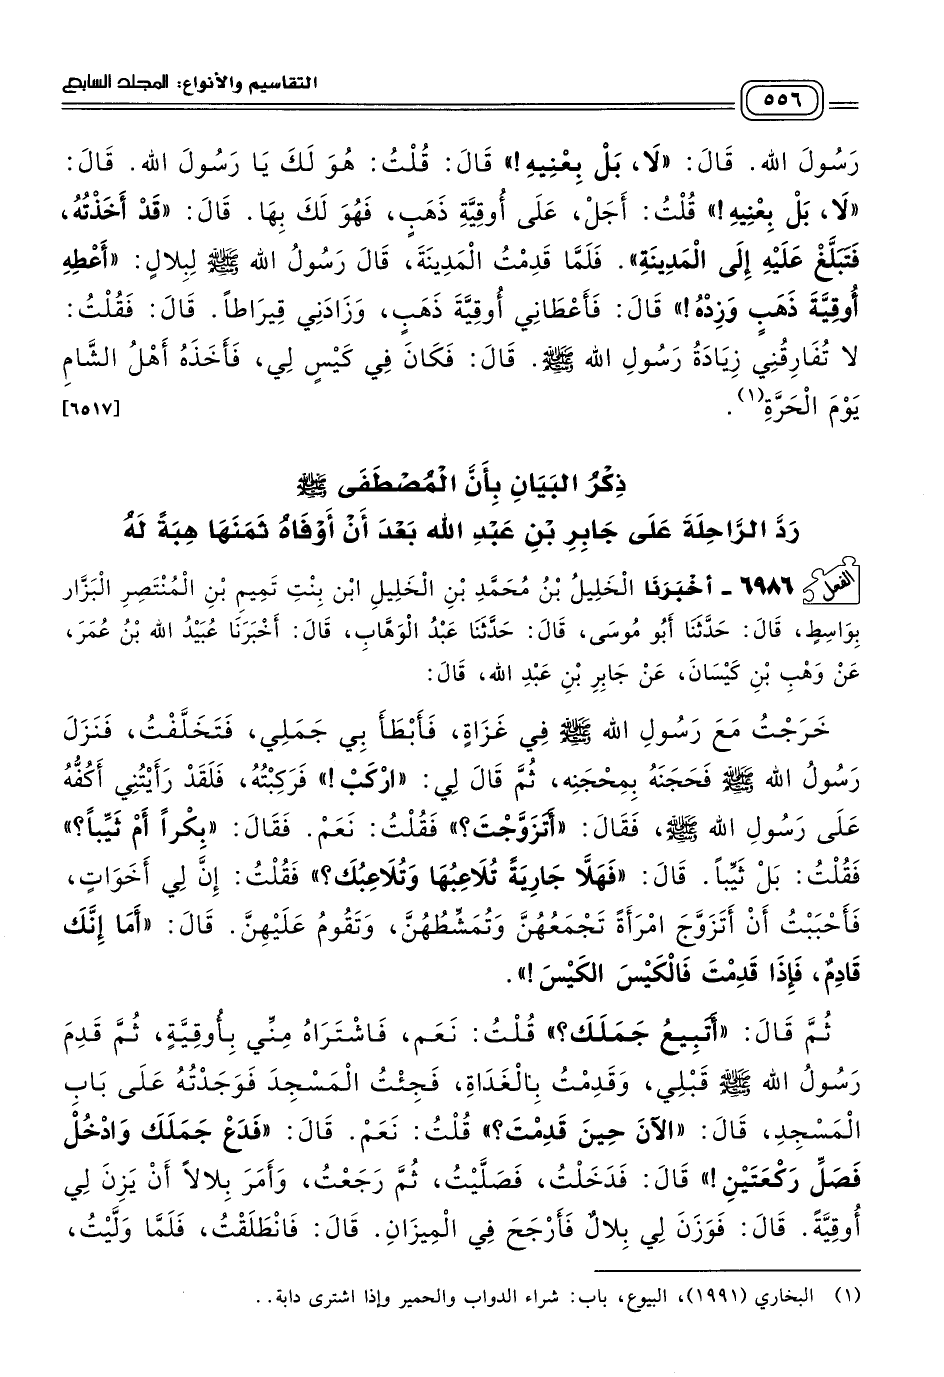 التقاسيم والأنواع: المجلد السابع
٥٥٦
رَسُولَ الله. قَالَ: «لَا، بَلْ بِعْنِيهِ!» قَالَ: قُلْتُ: هُوَ لَكَ يَا رَسُولَ الله. قَالَ:
«لَا، بَلْ بِعْنِيهِ!» قُلْتُ: أَجَلْ، عَلَى أُوقِيَّةِ ذَهَبٍ، فَهُوَ لَكَ بِهَا. قَالَ: «قَدْ أَخَذْتُهُ،
فَتَبَلَّغْ عَلَيْهِ إِلَى الْمَدِينَةِ». فَلَمَّا قَدِمْتُ الْمَدِينَةَ، قَالَ رَسُولُ الله ﷺ لِبِلالٍ: «أَعْطِهِ
أُوقِيَّةَ ذَهَبٍ وَزِدْهُ!» قَالَ: فَأَعْطَانِي أُوقِيَّةَ ذَهَبٍ، وَزَادَنِي قِيرَاطاً. قَالَ: فَقُلْتُ:
لا تُفَارِقُنِي زِيَادَةُ رَسُولِ الله ﷺ. قَالَ: فَكَانَ فِي كَيْسٍ لِي، فَأَخَذَهُ أَهْلُ الشَّامِ
يَوْمَ الْحَرَّةِ(١). [٦٥١٧]
ذِكْرُ البَيَانِ بِأَنَّ الْمُصْطَفَى ﷺ
رَدَّ الرَّاحِلَةَ عَلَى جَابِرِ بْنِ عَبْدِ الله بَعْدَ أَنْ أَوْفَاهُ ثَمَنَهَا هِبَةً لَهُ
الفعل ٦٩٨٦ - أَخْبَرَنَا الْخَلِيلُ بْنُ مُحَمَّدِ بْنِ الْخَلِيلِ ابْنِ بِنْتِ تَمِيمِ بْنِ الْمُنْتَصِرِ البَزَّار
بِوَاسِطٍ، قَالَ: حَدَّثَنَا أَبُو مُوسَى، قَالَ: حَدَّثَنَا عَبْدُ الْوَهَّابِ، قَالَ: أَخْبَرَنَا عُبَيْدُ الله بْنُ عُمَرَ،
عَنْ وَهْبِ بْنِ كَيْسَانَ، عَنْ جَابِرِ بْنِ عَبْدِ الله، قَالَ:
خَرَجْتُ مَعَ رَسُولِ الله ﷺ فِي غَزَاةٍ، فَأَبْطَأَ بِي جَمَلِي، فَتَخَلَّفْتُ، فَنَزَلَ
رَسُولُ الله ﷺ فَحَجَنَهُ بِمِحْجَنِه، ثُمَّ قَالَ لِي: «ارْكَبْ!» فَرَكِبْتُهُ، فَلَقَدْ رَأَيْتُنِي أَكُفُّهُ
عَلَى رَسُولِ الله ﷺ، فَقَالَ: «أَتَزَوَّجْتَ؟» فَقُلْتُ: نَعَمْ. فَقَالَ: «بِكْراً أَمْ ثَيِّباً؟»
فَقُلْتُ: بَلْ ثَيِّباً. قَالَ: «فَهَلَّا جَارِيَةً تُلَاعِبُهَا وَتُلَاعِبُكَ؟» فَقُلْتُ: إِنَّ لِي أَخَوَاتٍ،
فَأَحْبَبْتُ أَنْ أَتَزَوَّجَ امْرَأَةً تَجْمَعُهُنَّ وَتُمَشِّطُهُنَّ، وَتَقُومُ عَلَيْهِنَّ. قَالَ: «أَمَا إِنَّكَ
قَادِمٌ، فَإِذَا قَدِمْتَ فَالْكَيْسَ الكَيْسَ!».
ثُمَّ قَالَ: «أَتَبِيعُ جَمَلَكَ؟» قُلْتُ: نَعَم، فَاشْتَرَاهُ مِنِّي بِأُوقِيَّةٍ، ثُمَّ قَدِمَ
رَسُولُ الله ﷺ قَبْلِي، وَقَدِمْتُ بِالْغَدَاةِ، فَجِئْتُ الْمَسْجِدَ فَوَجَدْتُهُ عَلَى بَابِ
الْمَسْجِدِ، قَالَ: «الآنَ حِينَ قَدِمْتَ؟» قُلْتُ: نَعَمْ. قَالَ: «فَدَعْ جَمَلَكَ وَادْخُلْ
فَصَلِّ رَكْعَتَيْنِ!» قَالَ: فَدَخَلْتُ، فَصَلَّيْتُ، ثُمَّ رَجَعْتُ، وَأَمَرَ بِلالاً أَنْ يَزِنَ لِي
أُوقِيَّةً. قَالَ: فَوَزَنَ لِي بِلالٌ فَأَرْجَحَ فِي الْمِيزَانِ. قَالَ: فَانْطَلَقْتُ، فَلَمَّا وَلَّيْتُ،
(١) البخاري (١٩٩١)، البيوع، باب: شراء الدواب والحمير وإذا اشترى دابة..